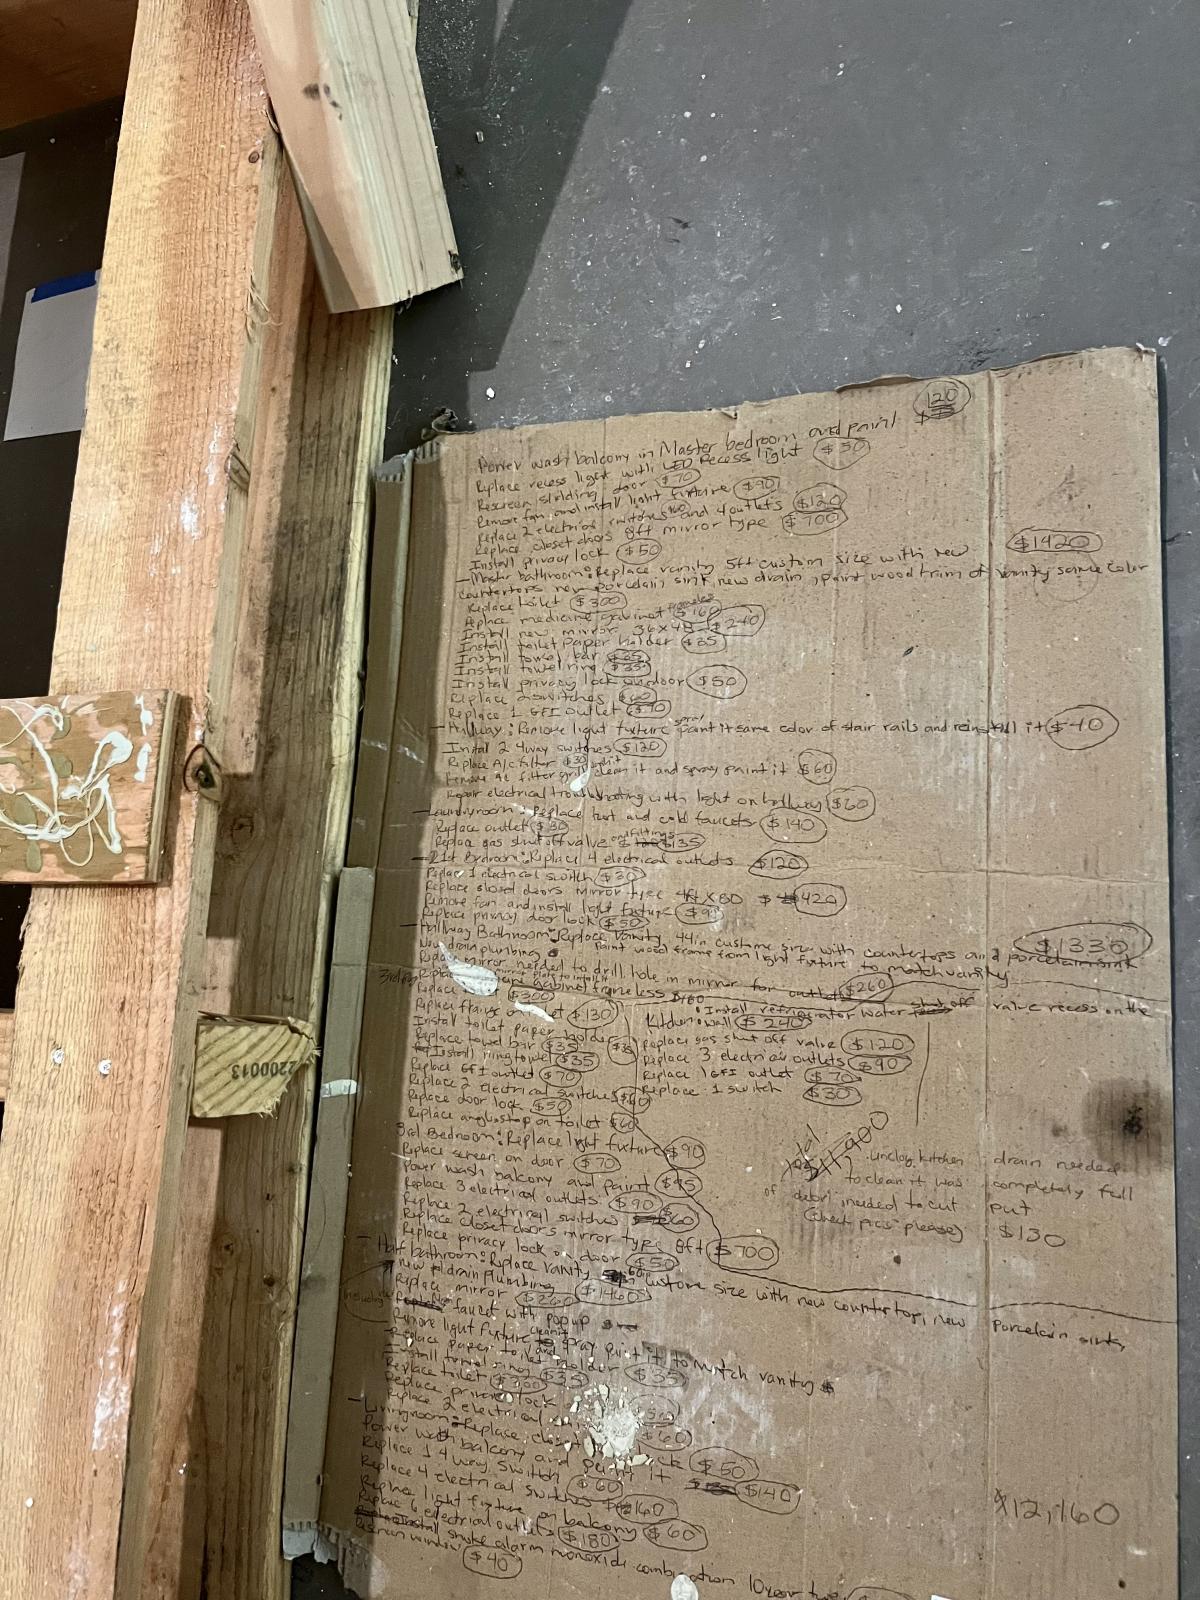 120
Power wash balcony in Master bedroom and paint
Replace recess light with LED Recess light $50
Rescreen sliding door $70
Remove fan and install light fixture $90
Replace 2 electrical switches $60 and 4 outlets $120
Replace closet doors 8ft mirror type $700
Install privacy lock $50
$1420
- Master bathroom: Replace vanity 5ft custom size with new
countertops new porcelain sink, new drain, paint wood trim of vanity same color
Replace toilet $300
Replace medicine gabinet frameless $160
Install new mirror 36x48 $240
Install toilet paper holder $35
Install towel bar $35
Install towel ring $35
Install privacy lock on door $50
Replace 2 switches $60
Replace 1 GFI outlet $70
- Hallway: Remove light fixture spray paint it same color of stair rails and reinstall it $40
Install 2 4way switches $120
Replace A/c filter $30
Remove Ac filter grill clean it and spray paint it $60
Repair electrical troubleshooting with light on hallway $60
- Laundryroom: Replace hot and cold faucets $140
Replace outlet $30
Replace gas shut off valve and fittings $135
- 1st Bedroom: Replace 4 electrical outlets $120
Replace 1 electrical switch $30
Replace closed doors mirror type 4ft x 80 $420
Remove fan and install light fixture $90
Replace privacy door lock $50
- Hallway Bathroom: Replace Vanity 44in custome size with countertops and porcelain sink $1335
New drain plumbing Paint wood frame from light fixture to match vanity
Replace mirror needed to drill hole in mirror for outlet $260
gabinet frameless $160
$300
Replace flange on toilet $130
Install toilet paper holder $35
Replace towel bar $35
Install ring towel $35
Replace GFI outlet $70
Replace 2 electrical switches $60
Replace door lock $50
Replace anglestop on toilet $60
Kitchen: Install refrigerator water shut off valve recess on the
wall $240
Replace gas shut off valve $120
Replace 3 electrical outlets $90
Replace 1 GFI outlet $70
Replace 1 switch $30
3rd Bedroom: Replace light fixture $90
Replace screen on door $70
Power wash balcony and paint $95
Replace 3 electrical outlets $90
Replace 2 electrical switches $60
Replace closet doors mirror type 8ft $700
Replace privacy lock on door $50
total $11,900
unclog kitchen drain needed
to clean it was completely full
of debri needed to cut put
(check pics please) $130
- Half bathroom: Replace vanity 60in custome size with new countertop, new porcelain sink,
new drain plumbing $1460
Replace mirror $260
faucet with popup
Remove light fixture clean it spray paint it to match vanity
Replace paper toilet holder $35
Install towel ring $35
Replace toilet $300
Replace privacy lock
Replace 2 electrical $60
- Livingroom: Replace closet lock $50
Power wash balcony and paint it $140
Replace 1 4 way switch $60
Replace 4 electrical switches $160
Replace light fixture on balcony $60
Replace 6 electrical outlets $180
Install smoke alarm monoxide combination 10 year type
Rescreen window $40
$12,160
2200013